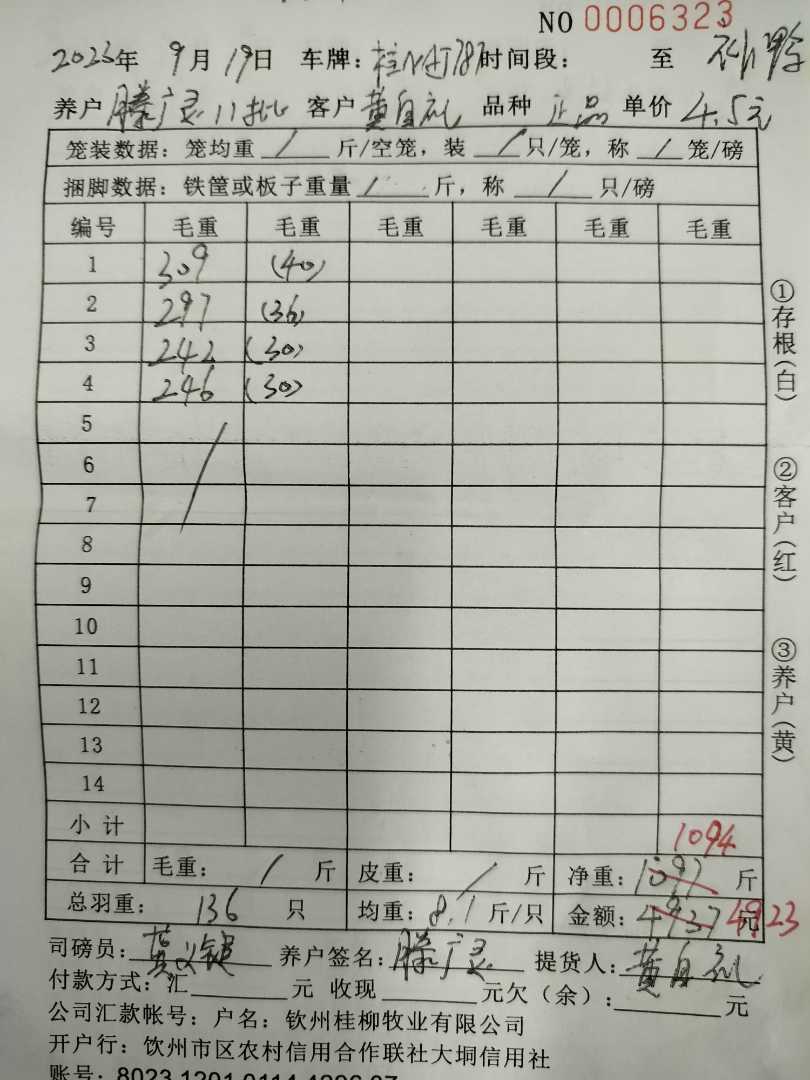 NO 0006323
2023年 9月19日 车牌: 时间段: 至
养户 滕广灵 11批 客户 黄自礼 品种 正品 单价 4.5元
笼装数据: 笼均重 / 斤/空笼, 装 / 只/笼, 称 / 笼/磅
捆脚数据: 铁筐或板子重量 / 斤, 称 / 只/磅
编号 毛重 毛重 毛重 毛重 毛重 毛重
1 309 (40)
2 297 (36)
3 242 (30)
4 246 (30)
5
6
7
8
9
10
11
12
13
14
小计 1094
合计 毛重: / 斤 皮重: / 斤 净重: 1097 斤
总羽重: 136 只 均重: 8.1 斤/只 金额: 4937 元 4923
司磅员: 养户签名: 滕广灵 提货人: 黄自礼
付款方式: 汇 元 收现 元欠(余): 元
公司汇款帐号: 户名: 钦州桂柳牧业有限公司
开户行: 钦州市区农村信用合作联社大垌信用社
账号:
①存根(白)
②客户(红)
③养户(黄)